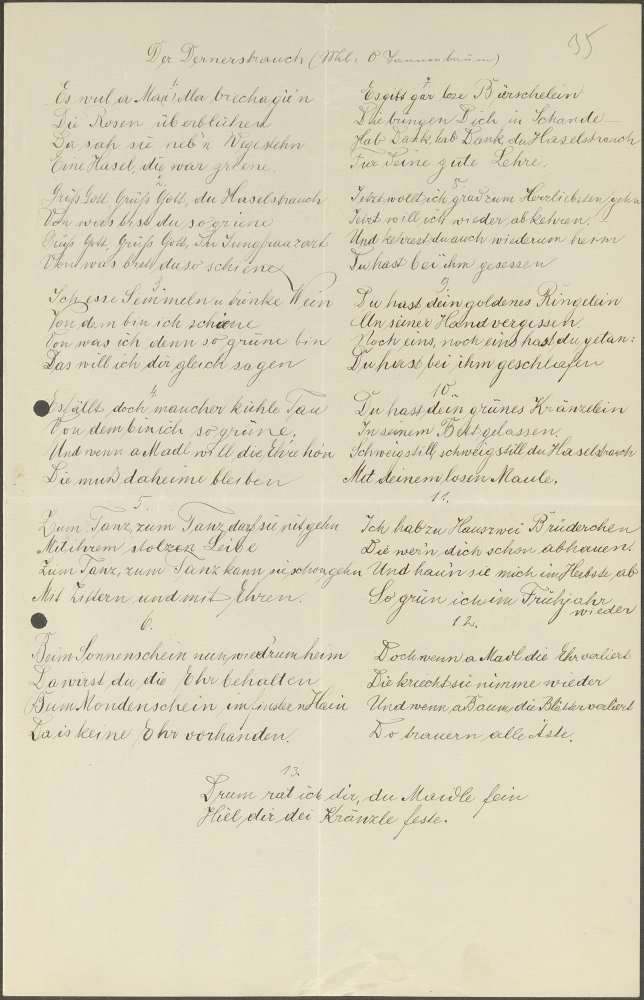 35
Der Dornerstrauch (Mel: O Tannenbaum)
1.
Es wul a Madl dla brechagie'n
Die Rosen überblühen
Da sah sie neb'n Wegestehn
Eine Hasel, die war grüene.
2.
Grüß Gott, Grüß Gott, du Haselstrauch
Von was bist du so grüene
Grüß Gott, Grüß Gott, Du Jungfrau zart
Von was bist du so schiene
3.
Ich esse Semmeln u. trinke Wein
Von dem bin ich schiene
Von was ich denn so grüne bin
Das will ich dir gleich sagen
4.
Es fällt doch mancher kühle Tau
Von dem bin ich so grüne,
Und wenn a Madl will die Ehre hon
Die muß daheime bleiben
5.
Zum Tanz, zum Tanz darf sie nit gehn
Mit ihrem stolzen Leibe
Zum Tanz, zum Tanz kann sie schon gehn
Mit Zittern und mit Ehren.
6.
Beim Sonnenschein nun wiedrum heim
Da wirst du die Ehr behalten
Beim Mondenschein im finstern Hain
Da is keine Ehr vorhanden.
7.
Es gibt gar lose Bürschelein
Die bringen Dich in Schande
Hab Dank, hab Dank du Haselstrauch
Für Deine gute Lehre.
8.
Jetzt wollt ich grad zum Herzliebsten gehn
Jetzt will ich wieder abkehren.
Und kehrest du auch wiederum herm
Du hast bei ihm gesessen
9.
Du hast dein goldenes Ringelein
An seiner Hand vergessen.
Noch eins, noch eins hast du getan:
Du hast bei ihm geschlafen
10.
Du hast dein grünes Kränzelein
In seinem Bett gelassen.
Schweig still, schweig still du Haselstrauch
Mit deinem losen Maule.
11.
Ich hab zu Haus zwei Brüderchen
Die wer'n dich schon abhauen.
Und hau'n sie mich im Herbste ab
So grün ich im Frühjahr wieder
12.
Doch wenn a Madl die Ehr verliert
Die kriecht sie nimme wieder
Und wenn a Baum die Blätter verliert
Do trauern alle Äste.
13.
Drum rat ich dir, du Maidle fein
Hiel dir dei Kränzle feste.